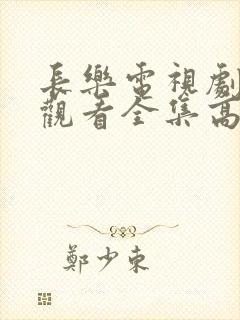 長樂電視劇
觀看全集高
鄭少東